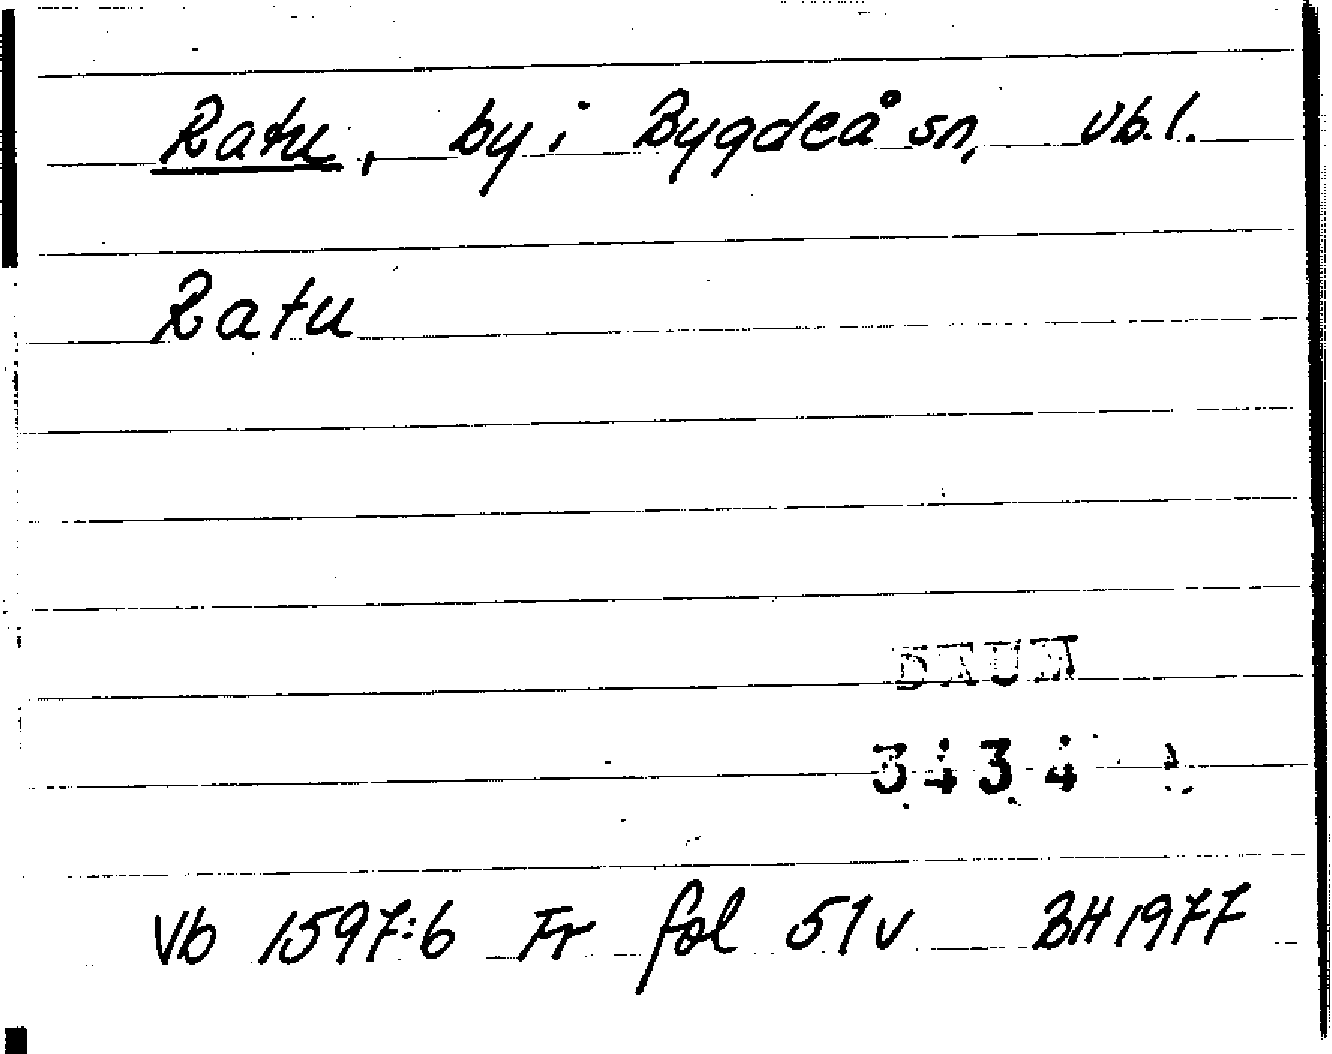 Ratu, by i Bygdeå sn, Vb. l.
Ratu
DAUM
3434
Vb 1597:6 Fr fol 51v BH 1977